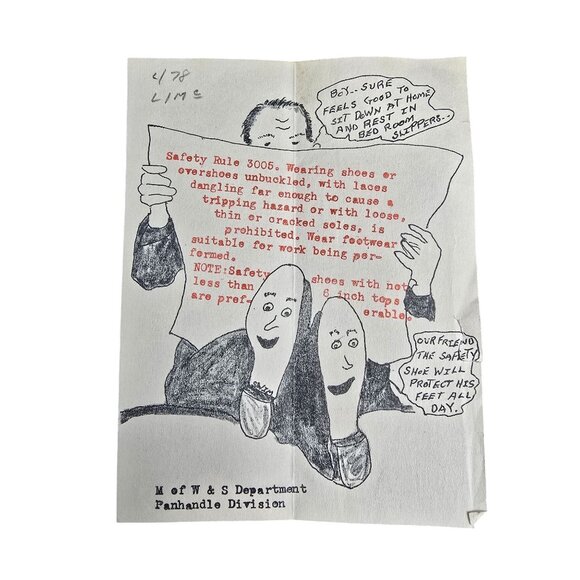 4/78
LIMS
BOY-- SURE
FEELS GOOD TO
SIT DOWN AT HOME
AND REST IN
BED ROOM
SLIPPERS..
Safety Rule 3005. Wearing shoes or
overshoes unbuckled, with laces
dangling far enough to cause a
tripping hazard or with loose,
thin or cracked soles, is
prohibited. Wear footwear
suitable for work being per-
formed.
NOTE:Safety shoes with not
less than 6 inch tops
are pref- erable.
OUR FRIEND
THE SAFETY
SHOE WILL
PROTECT HIS
FEET ALL
DAY.
M of W & S Department
Panhandle Division